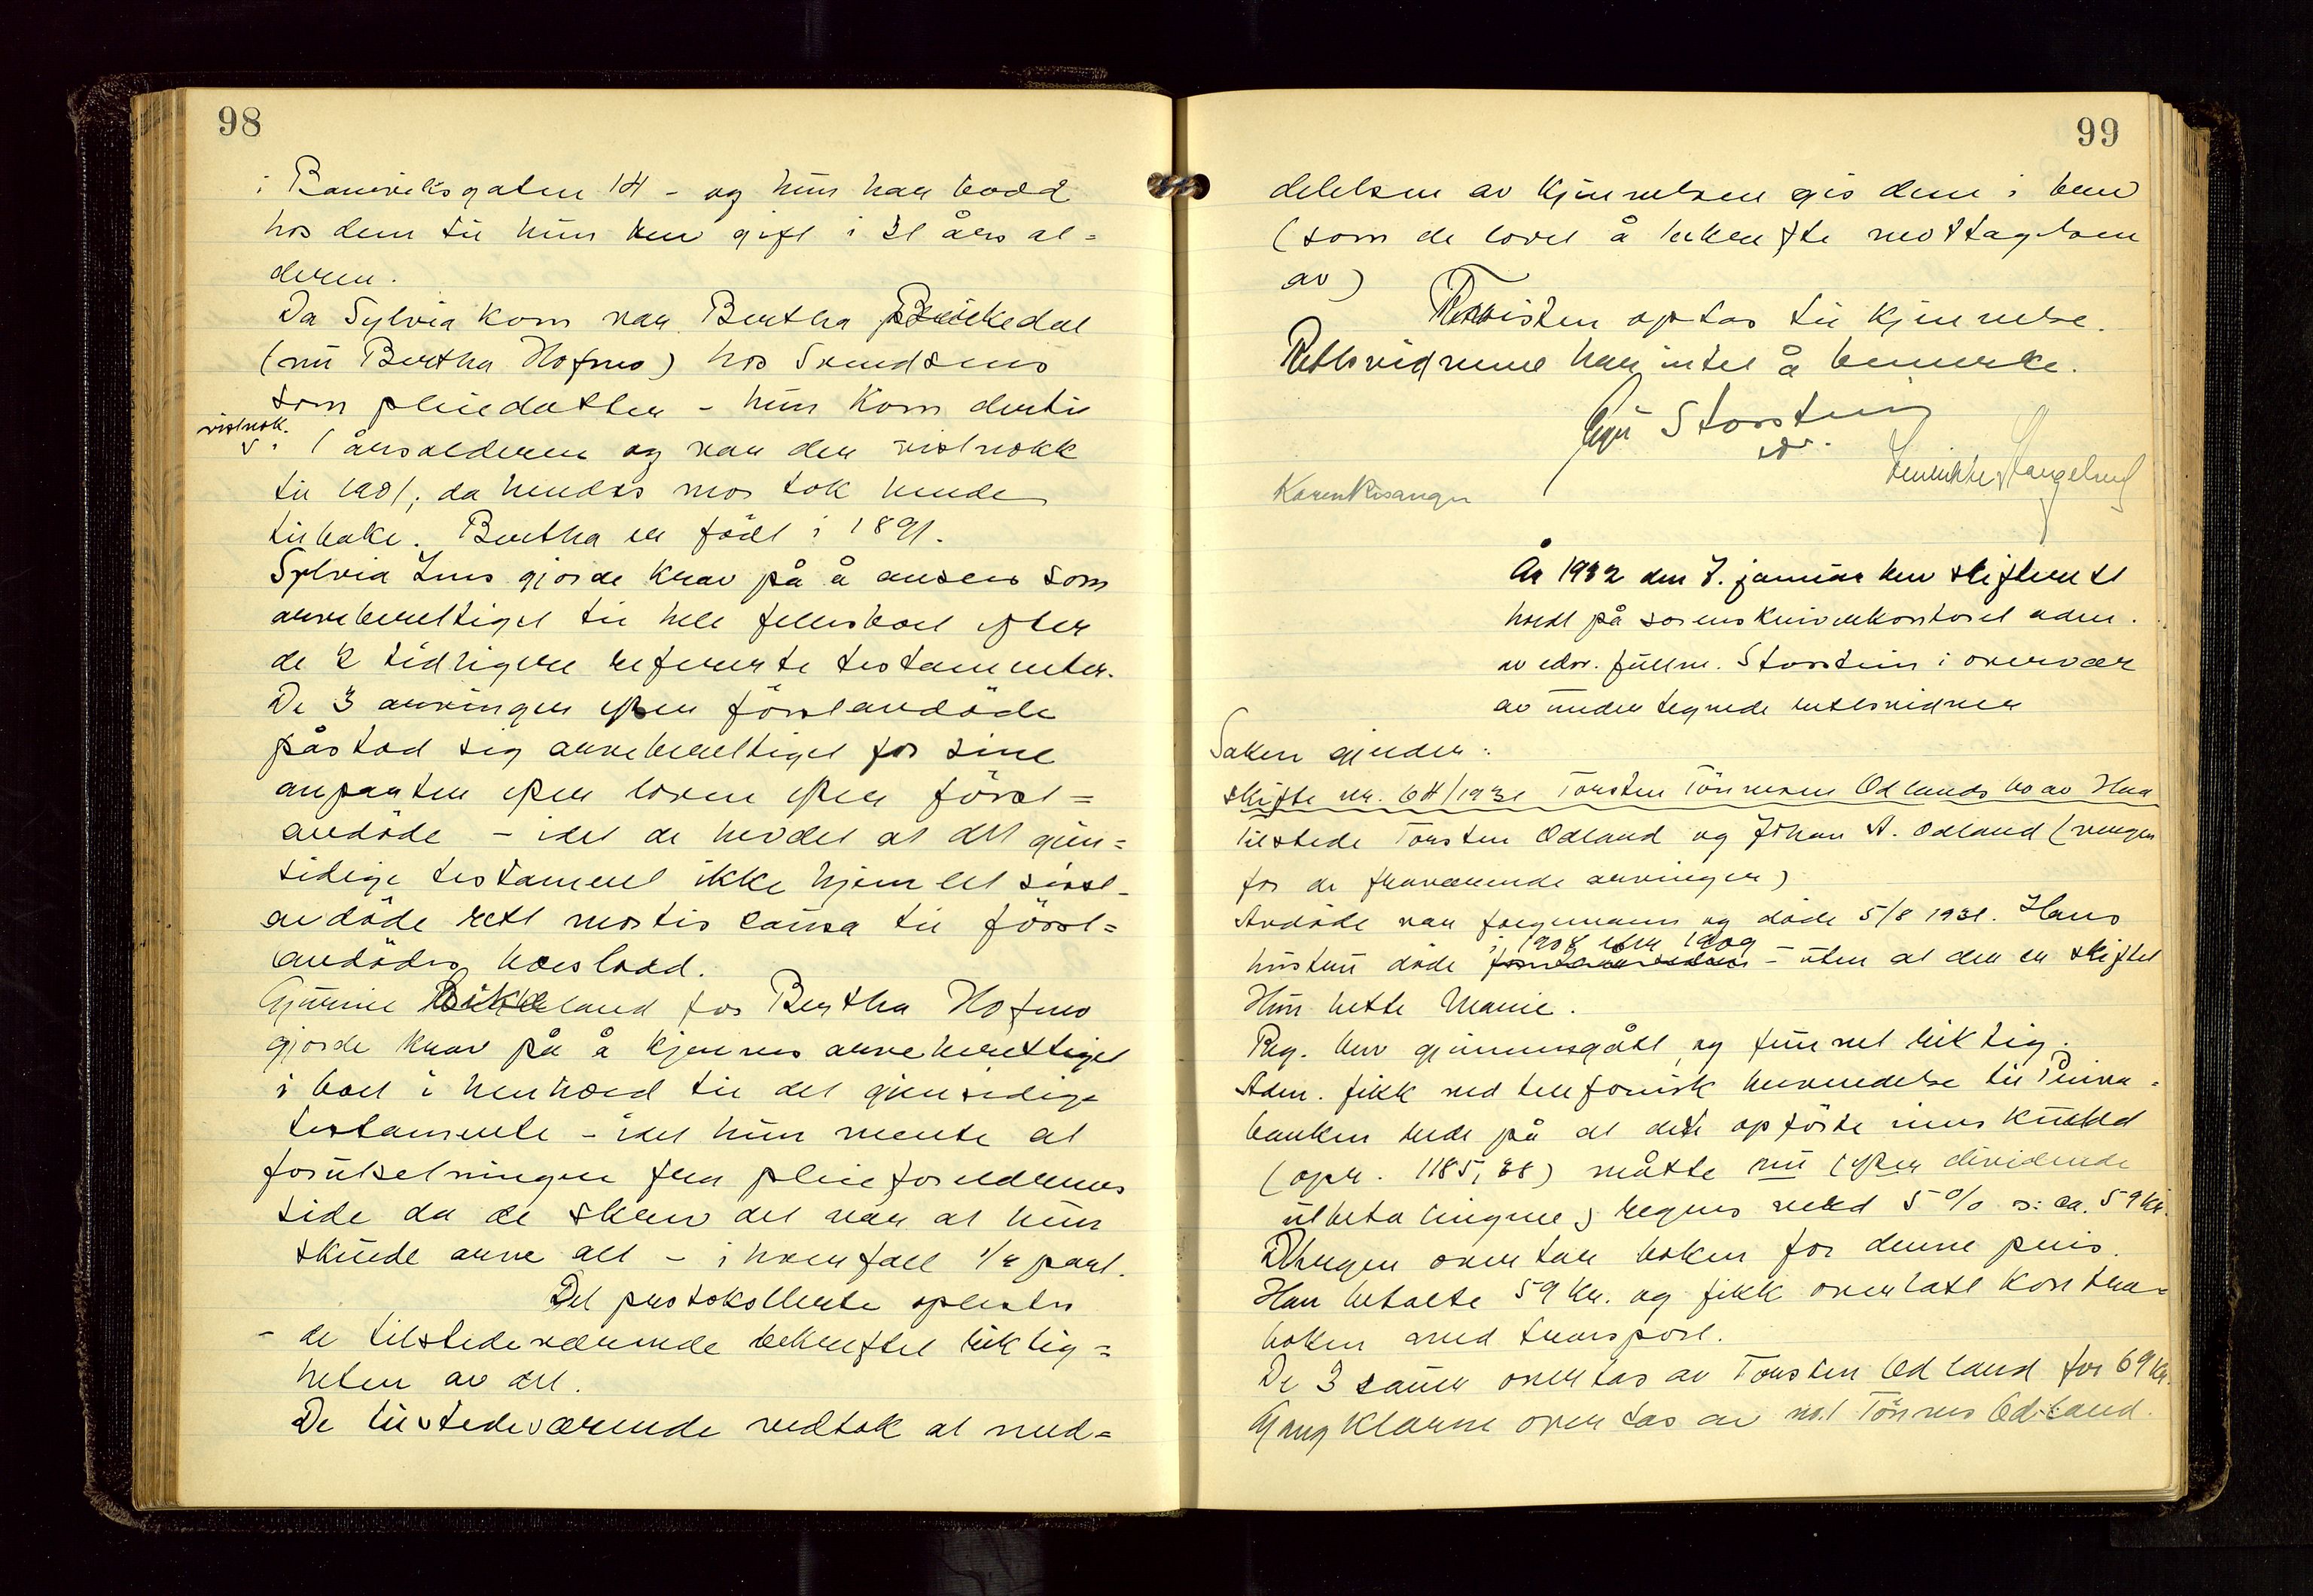 98
i Baneviksgaten 14 - og hun har bodd
hos dem til hun blev gift i 21 års al=
deren.
Da Sylvia kom var Bertha Birkedal
(nu Bertha Hofmo) hos Svendsens
som pleiedatter - hun kom dertil
vistnok.
5. i årsalderen og var der vistnokk
til 1901, da hendes mor tok hende
tilbake. Bertha er født i 1891.
Sylvia Lms gjorde krav på å ansees som
arveberettiget til hele fellesboet efter
de 2 tidligere refererte testamenter.
De 3 arvinger efter førstavdøde
påstod sig arveberettiget for sine
anparter efter loven efter først=
avdøde - idet de hevdet at det gjen=
sidige testament ikke hjemlet sist-
avdøde rett mortis causa til først=
avdødes boeslodd.
Gunnar Birkeland for Bertha Hofmo
gjorde krav på å kjennes arveberettiget
i boet i henhold til det gjensidige
testamente - idet hun mente at
forutsetningen fra pleieforeldrenes
side da de skrev det var at hun
skulde arve alt - i hvertfall 1/2 part.
Det protokollerte oplestes
- de tilstedeværende bekreftet riktig=
heten av det.
De tilstedeværende vedtok at med=
99
delelsen av kjennelsen gis dem i brev
(som de lovet å bekrefte mottagelsen
av)
Tvisten optas til kjennelse.
Rettsvidnene har intet å bemerke.
Storstein
edsv.
Karen Risanger
År 1932 den 7. januar blev skifterett
holdt på sorenskriverkontoret adm.
av edsv. fullm. Storstein i overvær
av undertegnede rettsvidner
Saken gjelder:
Skifte nr. 64/1931 Torsten Tønnesen Odlands bo av Haa
Tilstede Torsten Odland og Johan A. Odland (verge
for de fraværende arvinger)
Avdøde var forgemann og døde 5/8 1931. Hans
i 1908 eller 1909
hustru døde - uten at der er skiftet
Hun hette Marie.
Reg. blev gjennemgått og funnet riktig.
Adm. fikk ved telefonisk henvendelse til Priva=
banken rede på at det opførte innskudd
(opr. 1185,88) måtte nu (efter dividende
utbetalingene) regnes med 5% ɔ: ca. 59 kr.
Vergen overtar boken for denne pris.
Han betalte 59 kr. og fikk overlatt kontra=
boken med transport.
De 3 sauer overtas av Torsten Odland for 69 kr.
Gangklærne overtas av no.1 Tønnes Odland.